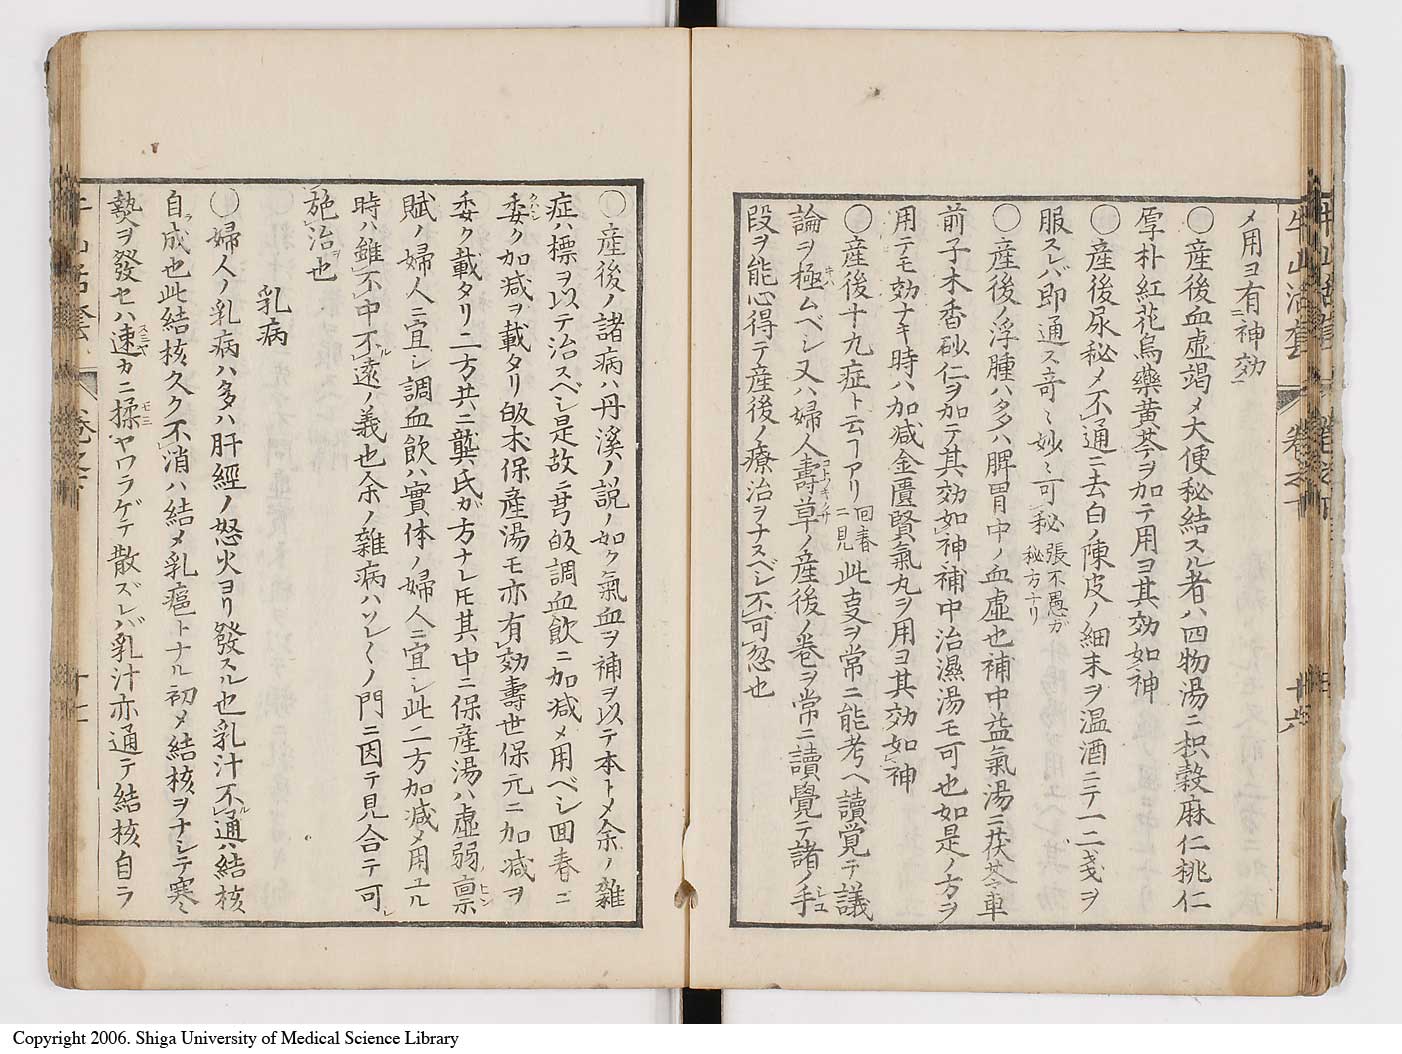 メ用ヨ有神効
〇産後血虚竭メ大便秘結スル者ハ四物湯ニ枳殻麻仁桃仁
厚朴紅花烏藥黄芩ヲ加テ用ヨ其効如神
〇産後尿秘メ不通ニ去白ノ陳皮ノ細末ヲ温酒ニテ一二戔ヲ
服スレバ即通ス奇〻妙〻可秘張不愚ガ秘方ナリ
〇産後ノ浮腫ハ多ハ脾胃中ノ血虚也補中益氣湯ニ茯苓車
前子木香砂仁ヲ加テ其効如神補中治濕湯モ可也如是ノ方ヲ
用テモ効ナキ時ハ加减金匱賢氣丸ヲ用ヨ其効如神
〇産後十九症ト云フアリ回春ニ見此支ヲ常ニ能考ヘ讀覚テ議
論ヲ極ムベシ又ハ婦人壽草ノ産後ノ巻ヲ常ニ讀覺テ諸ノ手
段ヲ能心得テ産後ノ療治ヲナスベシ不可忽也
牛山活套 巻之下 廿六
〇産後ノ諸病ハ丹溪ノ説ノ如ク氣血ヲ補ヲ以テ本トメ余ノ雑
症ハ標ヲ以テ治スベシ是故ニ芎皈調血飲ニ加减メ用ベシ回春ニ
委ク加减ヲ載タリ皈朮保産湯モ亦有効壽世保元ニ加减ヲ
委ク載タリ二方共ニ龔氏ガ方ナレ𪜈其中ニ保産湯ハ虚弱禀
賦ノ婦人ニ宜シ調血飲ハ實体ノ婦人ニ宜シ此二方加减メ用ユル
時ハ雖不中不遠ノ義也余ノ雑病ハソレ〱ノ門ニ因テ見合テ可
施治也
乳病
〇婦人ノ乳病ハ多ハ肝經ノ怒火ヨリ發スル也乳汁不通ハ結核
自成也此結核久ク不消ハ結メ乳癰トナル初メ結核ヲナシテ寒〻
𤍠ヲ發セハ速カニ揉ヤワラゲテ散ズレバ乳汁亦通テ結核自ラ
Copyright 2006. Shiga University of Medical Science Library